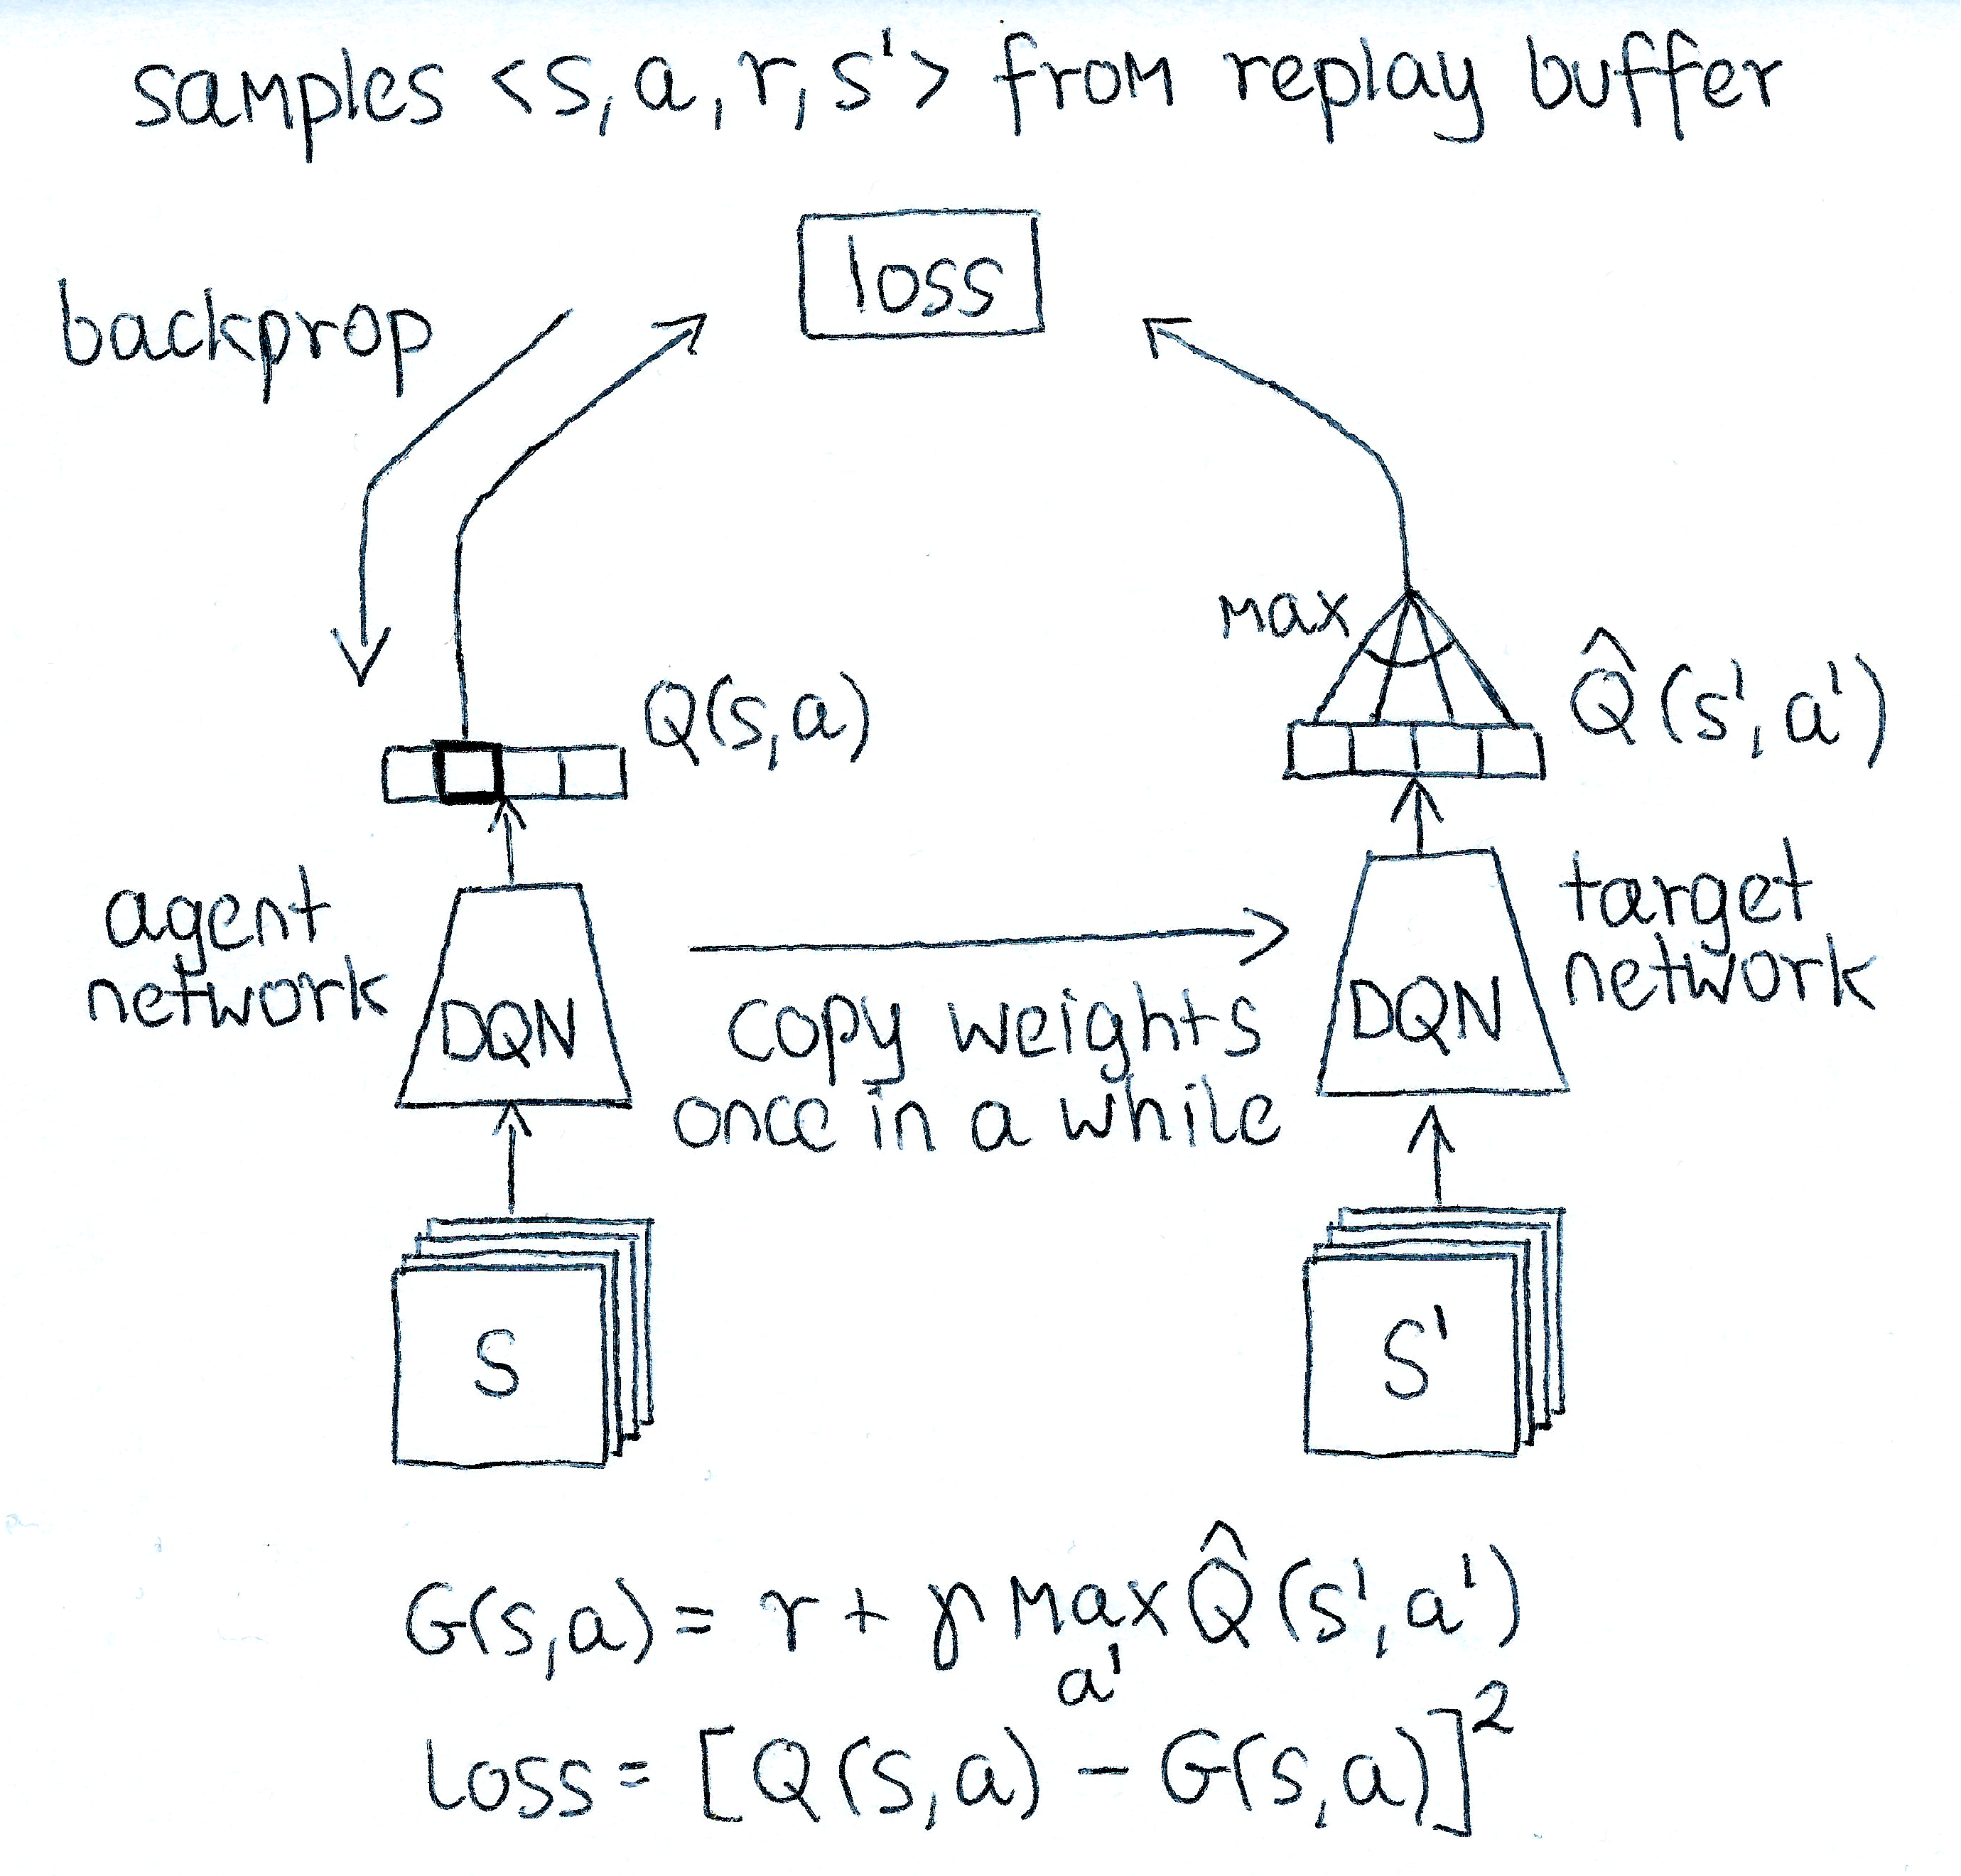 samples <s, a, r, s'> from replay buffer
loss
backprop
max
Q(s,a)
Q̂(s',a')
agent
network
DQN
copy weights
once in a while
DQN
target
network
S
S'
G(s,a) = r + γ max Q̂(s',a')
a'
loss = [Q(s,a) - G(s,a)]²